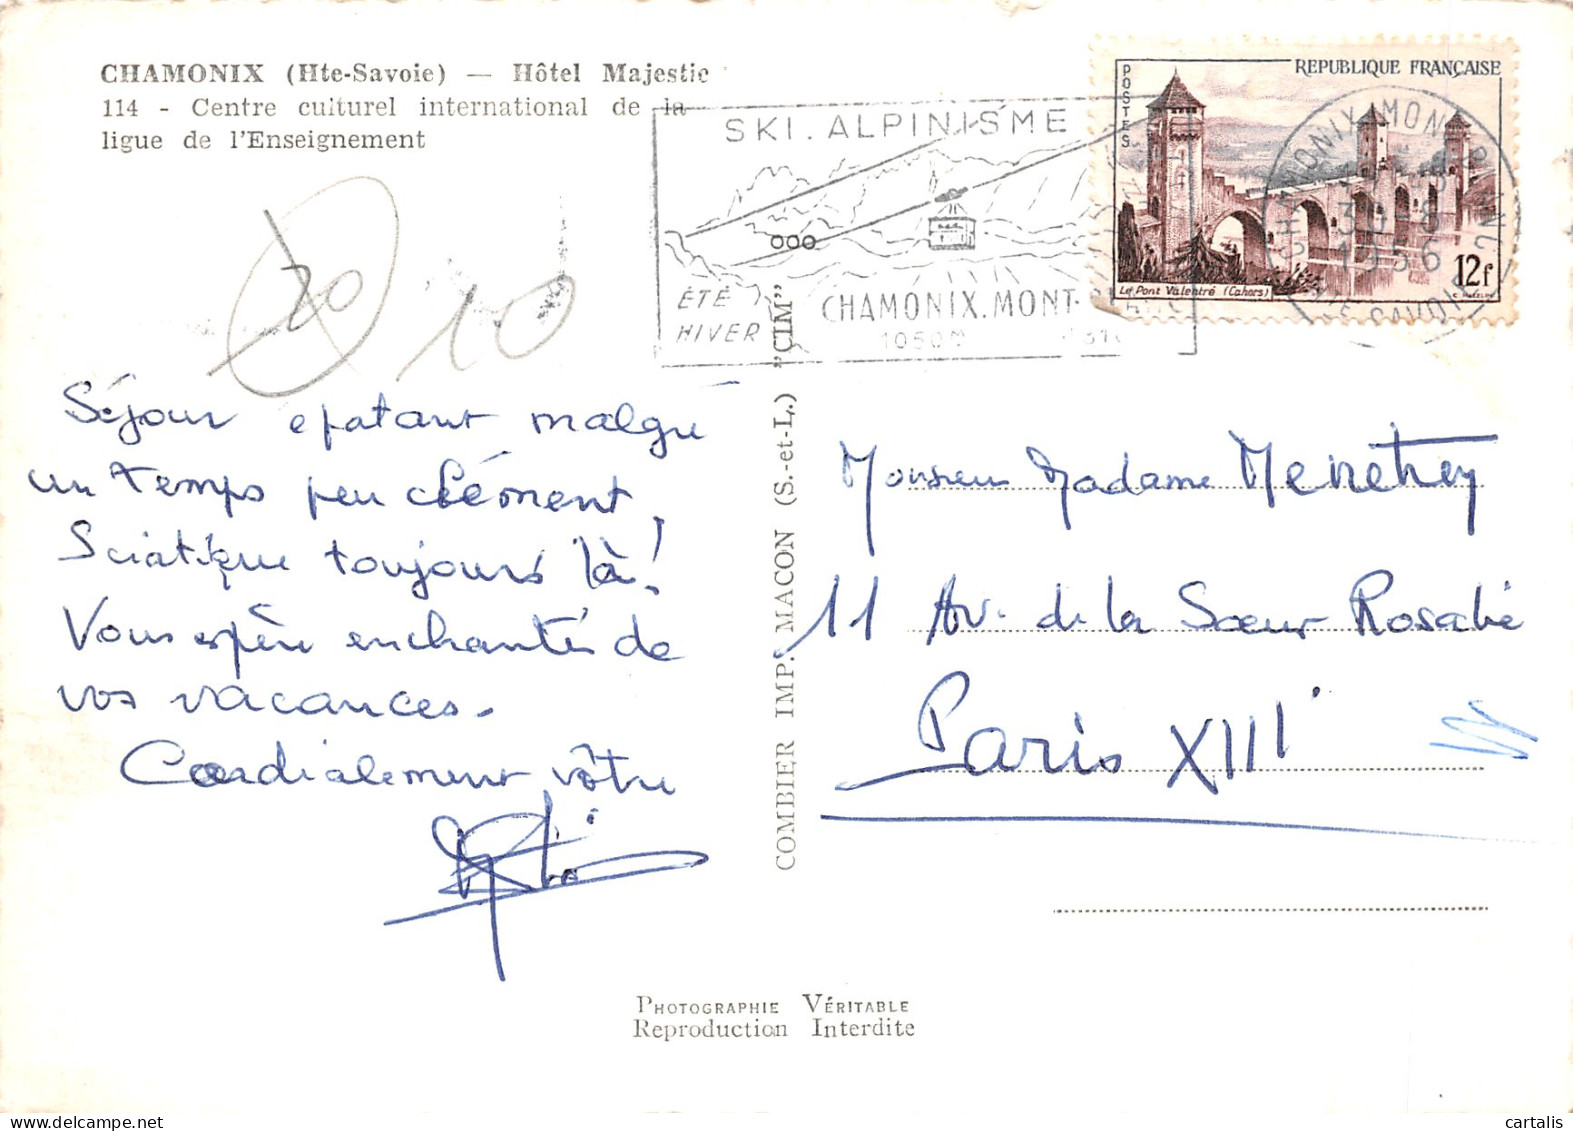 CHAMONIX (Hte-Savoie) — Hôtel Majestic
114 - Centre culturel international de la
ligue de l'Enseignement
20
10
SKI. ALPINISME
ÉTÉ
HIVER
CHAMONIX. MONT-
1050M
POSTES
REPUBLIQUE FRANÇAISE
Le Pont Valentré (Cahors)
12f
CHAMONIX-MONT-BLANC
30-8
1956
HTE SAVOIE
Séjour epatant malgré
un temps peu clément,
Sciatique toujours là!
Vous espère enchantés de
vos vacances.
Cordialement vôtre
COMBIER IMP. MACON (S.-et-L.) "CIM"
Monsieur Madame Menethey
11 Av. de la Sœur Rosalie
Paris XIII
PHOTOGRAPHIE VÉRITABLE
Reproduction Interdite
cartalis delcampe.net